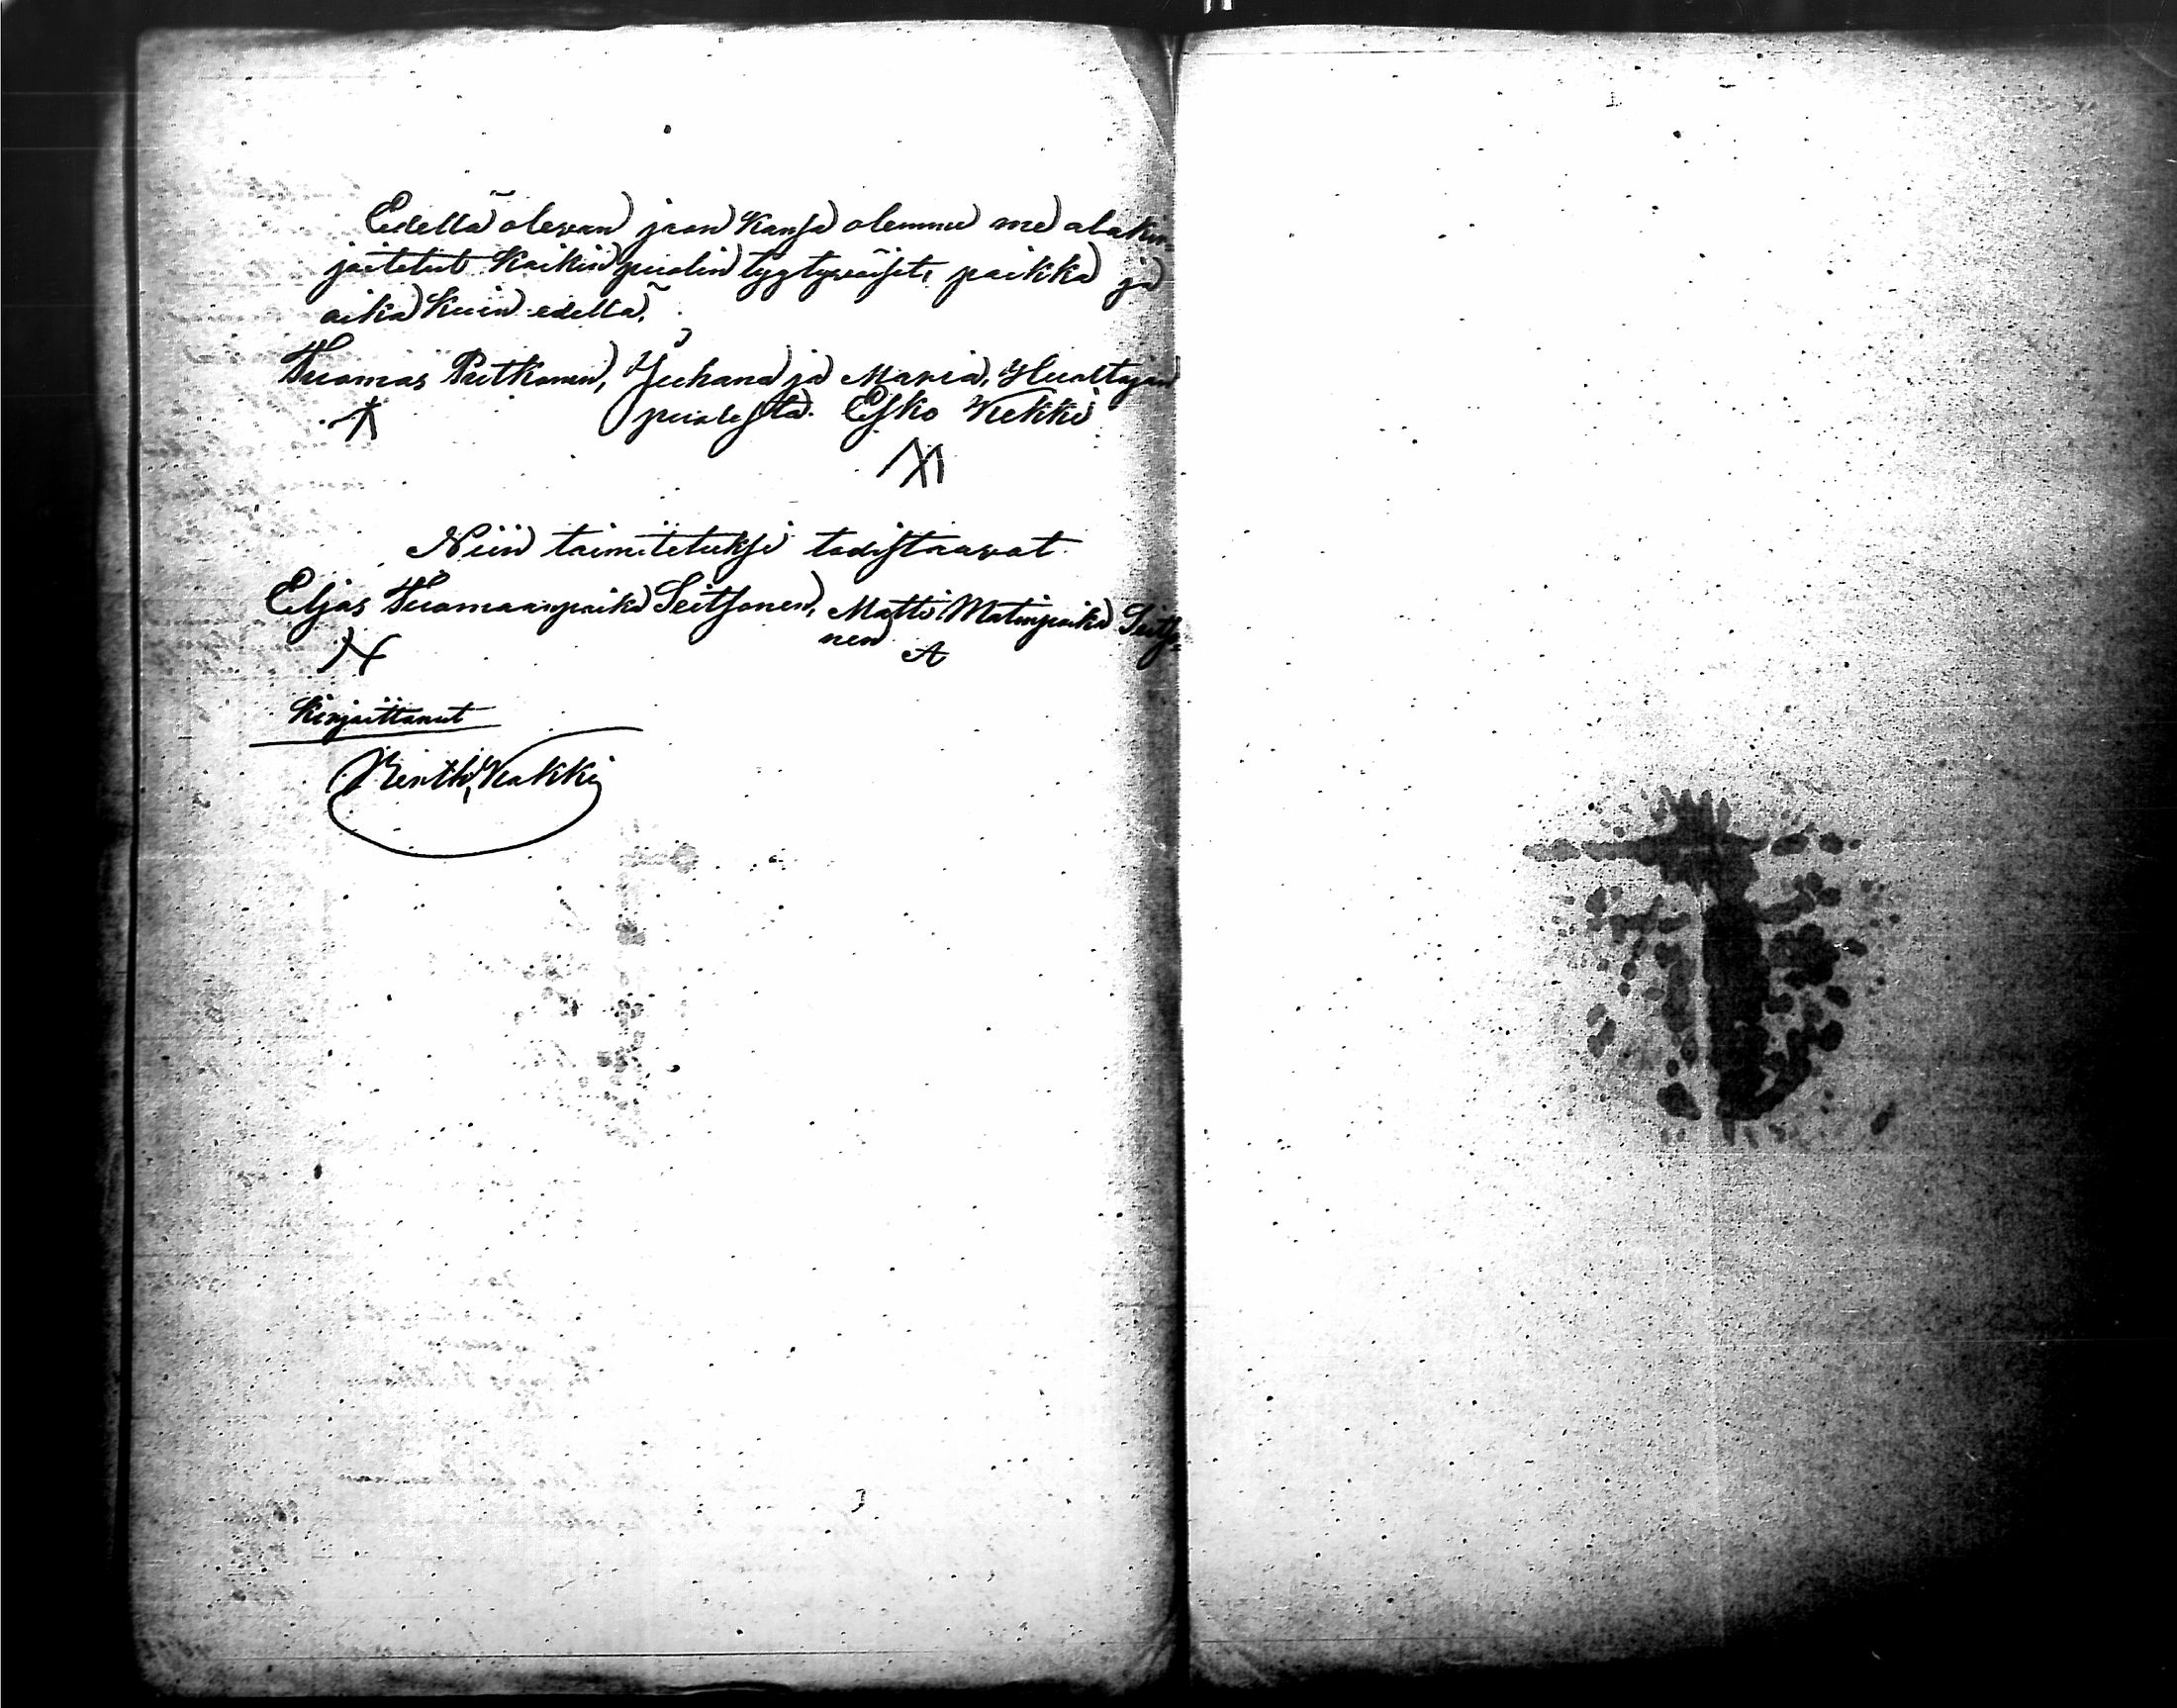 Edellä olevan jaon kanssa olemme me alakir-
jaitetut kaikin puolin tygtyväiset, paikka ja
aika kuin edellä.
Tuomas Putkonen, Juhana ja Maria, Huoltajan
puolesta. Esko Kekki
Niin toimitetuksi todistaavat
Eljas Tuomaanpoika Seitsonen, Matti Matinpoika Seitso-
nen
Kirjoittanut